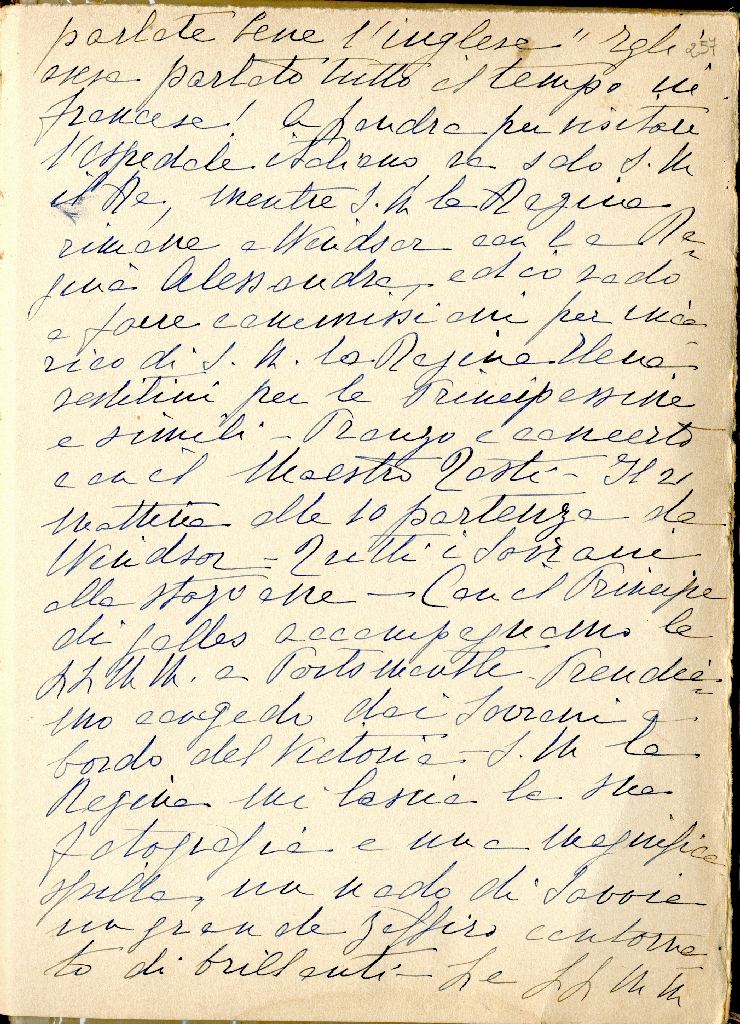 257
parlate bene l'inglese" Egli
aveva parlato tutto il tempo in
francese! A Londra per visitare
l'Ospedale italiano, va solo S. M
il Re, mentre S. M la Regina
rimane a Windsor con la Re=
gina Alessandra, ed io vado
a fare commissioni per inca=
rico di S. M. la Regina Elena
vestitini per le Principessine
e simili - Pranzo e concerto
con il Maestro Tosti - Il 21
mattina alle 10 partenza da
Windsor - Tutti i Sovrani
alla stazione - Con il Principe
di galles accompagnamo le
LL MM. a Portsmouth - Prendia=
mo congedo dai Sovrani a
bordo del Victoria - S. M la
Regina mi lascia la sua
fotografia e una magnifica
spilla, un nodo di Savoia
un grande zaffiro contorna
to di brillanti - Le LL MM